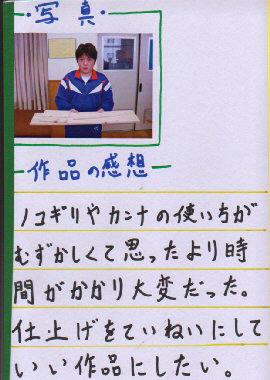 ・写真・
作品の感想
ノコギリやカンナの使い方が
むずかしくて思ったより時
間がかかり大変だった。
仕上げをていねいにして
いい作品にしたい。